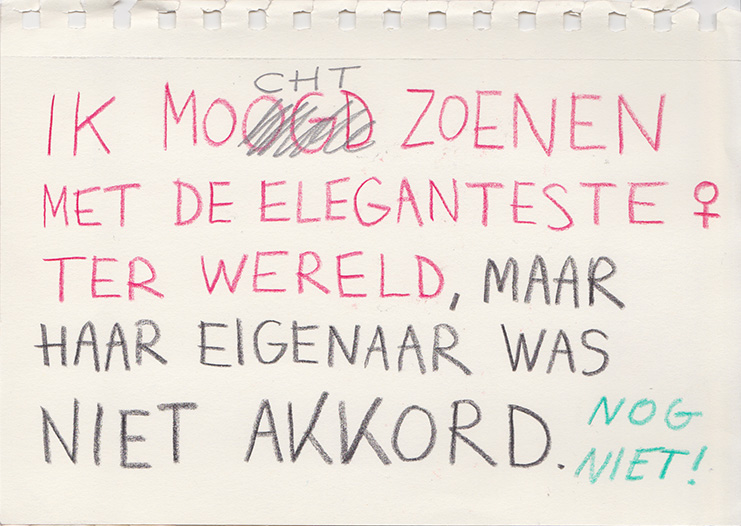 CHT
IK MOOGD ZOENEN
MET DE ELEGANTESTE ♀
TER WERELD, MAAR
HAAR EIGENAAR WAS
NIET AKKORD. NOG
NIET!